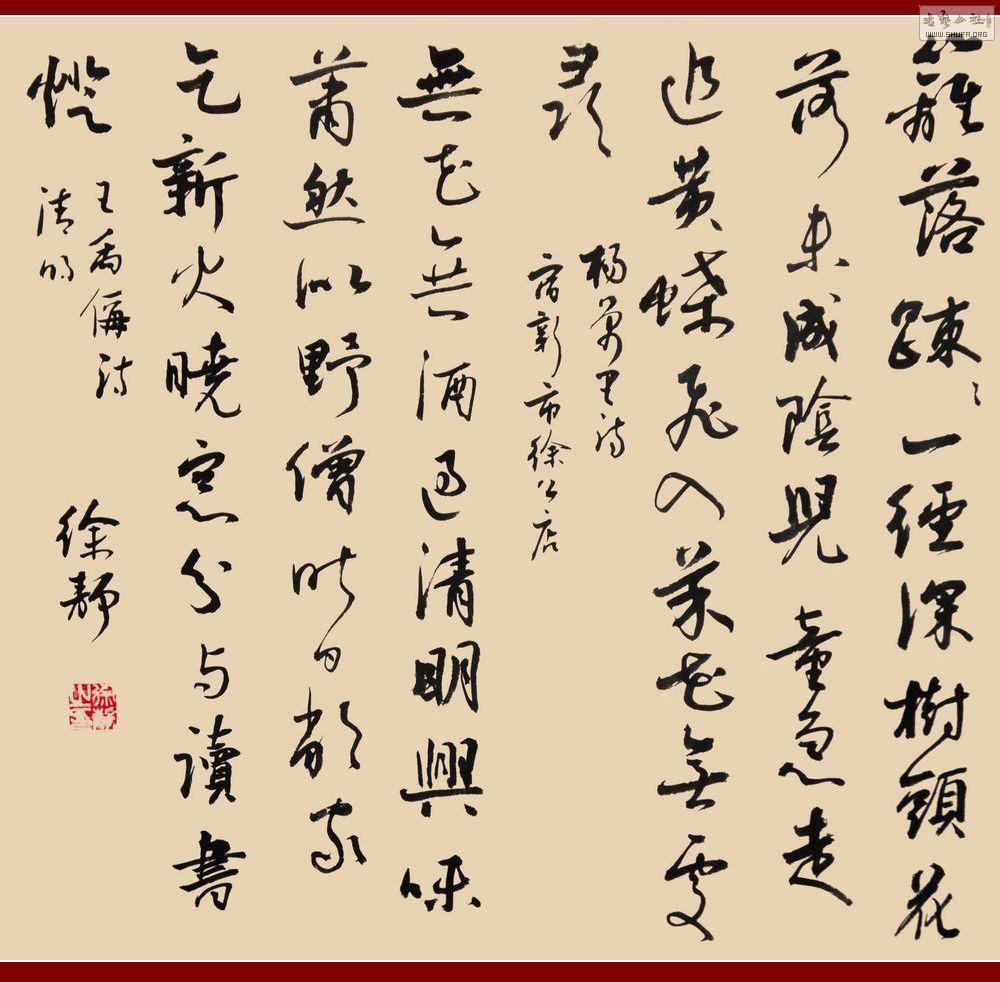 籬落疎々一徑深樹頭花
落未成陰兒童急走
追黃蝶飛入菜花無處
尋
楊萬里詩
宿新市徐公店
無花無酒過清明興味
蕭然似野僧昨日鄰家
乞新火曉窓分与讀書
燈
王禹偁詩
清明
徐靜
WWW.SHUFA.ORG